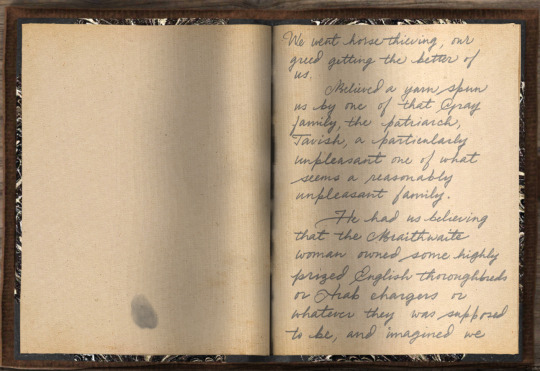 We went horse thieving, our
greed getting the better of
us.
Believed a yarn spun
us by one of that Gray
family, the patriarch,
Tavish, a particularly
unpleasant one of what
seems a reasonably
unpleasant family.
He had us believing
that the Braithwaite
woman owned some highly
prized English thoroughbreds
or Arab chargers or
whatever they was supposed
to be, and imagined we